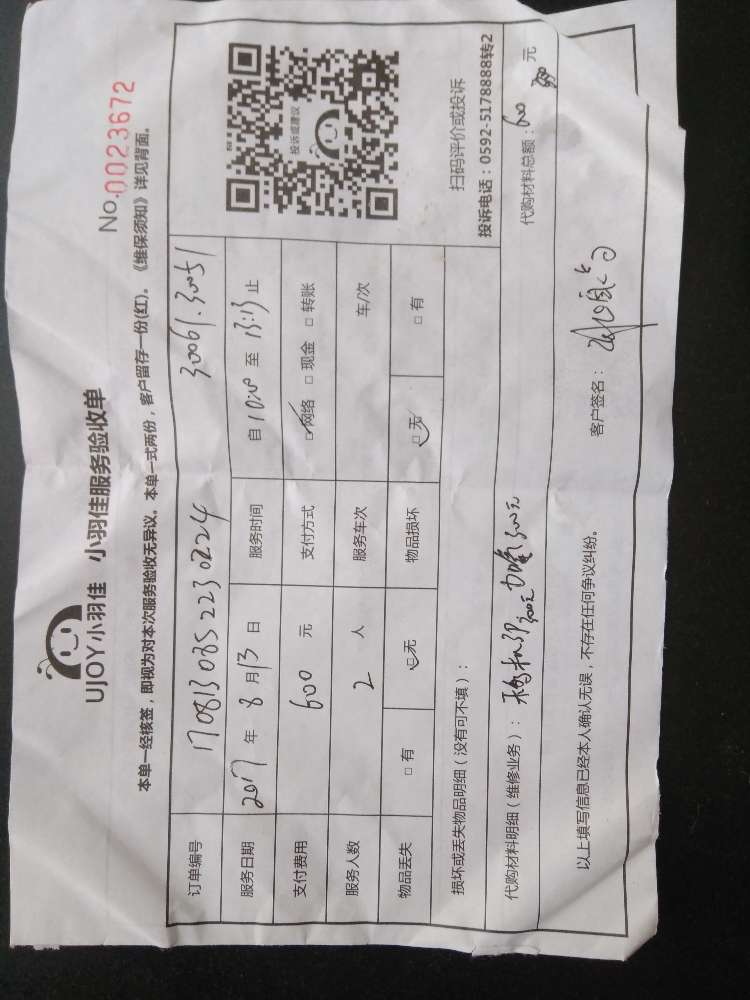 UJOY小羽佳 小羽佳服务验收单
No.0023672
本单一经核签，即视为对本次服务验收无异议。本单一式两份，客户留存一份(红)。《维保须知》详见背面。
订单编号 170813035223 0224 30061.30051
服务日期 2017 年 8 月 13 日 服务时间 自 10:00 至 13:13 止
支付费用 600 元 支付方式 ☑网络 □现金 □转账
服务人数 2 人 服务车次 车/次
物品丢失 □有 ☑无 物品损坏 ☑无 □有
投诉或建议
扫码评价或投诉
投诉电话：0592-5178888转2
损坏或丢失物品明细（没有可不填）：
代购材料明细（维修业务）： 300元 300元
代购材料总额：600 元
以上填写信息已经本人确认无误，不存在任何争议纠纷。
客户签名：